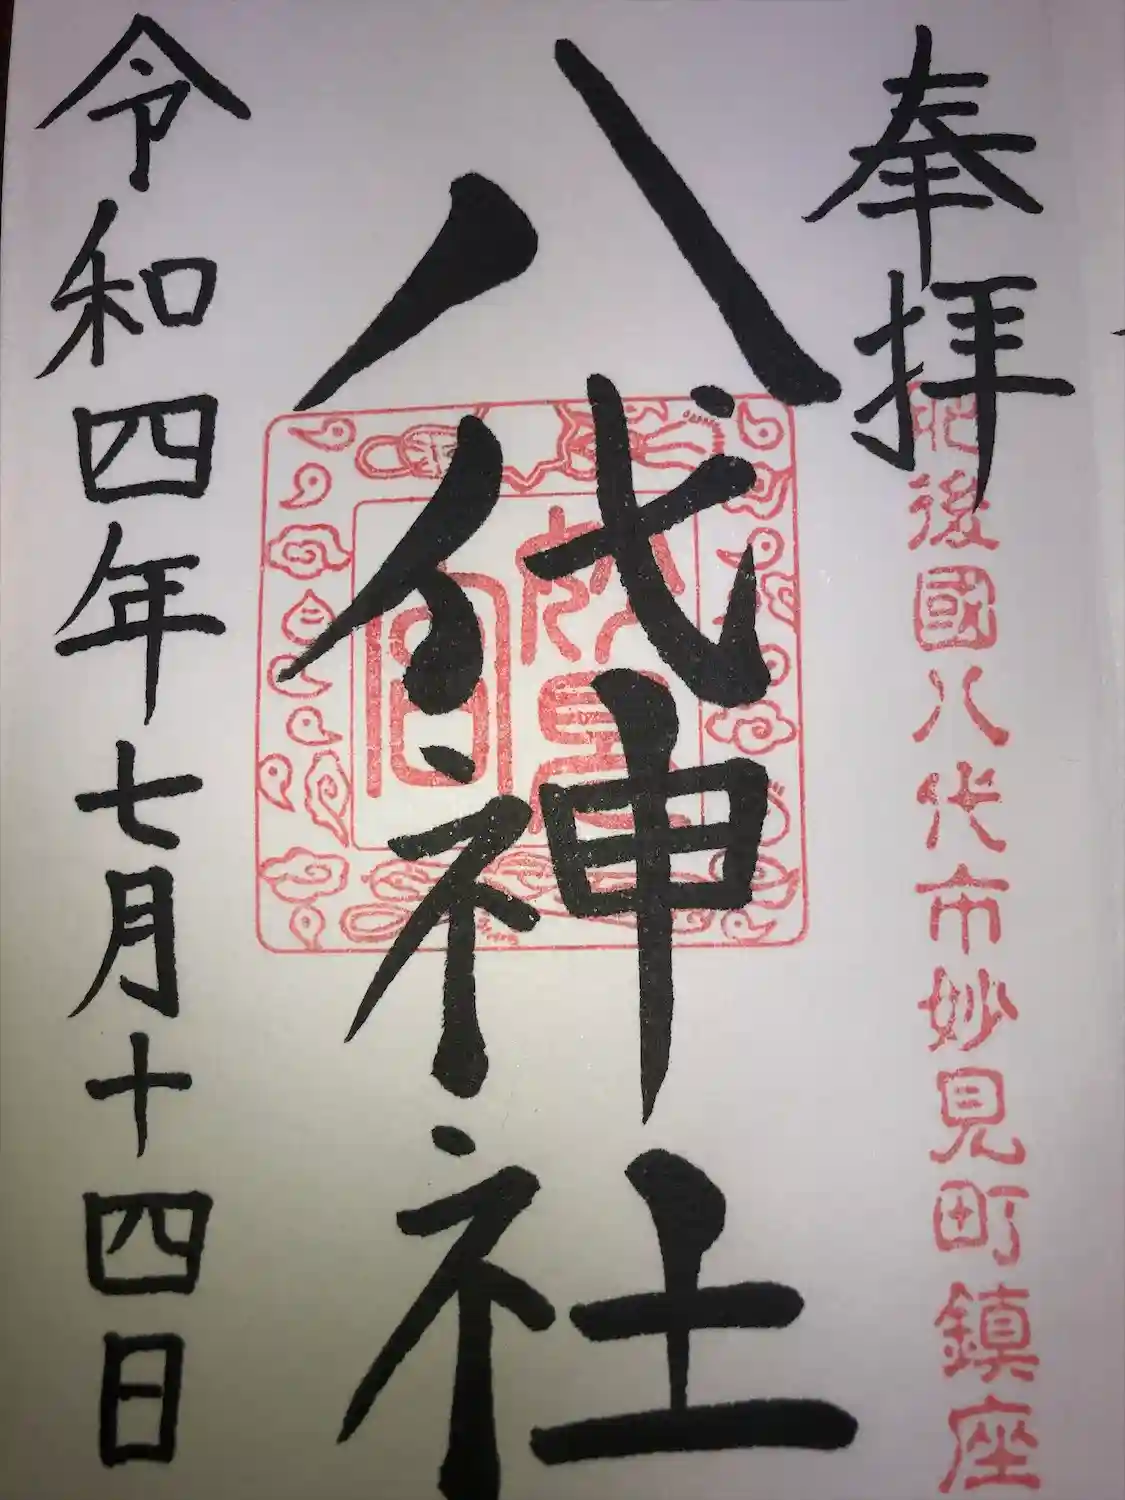 奉拝
肥後國八代市妙見町鎮座
八代神社
令和四年七月十四日